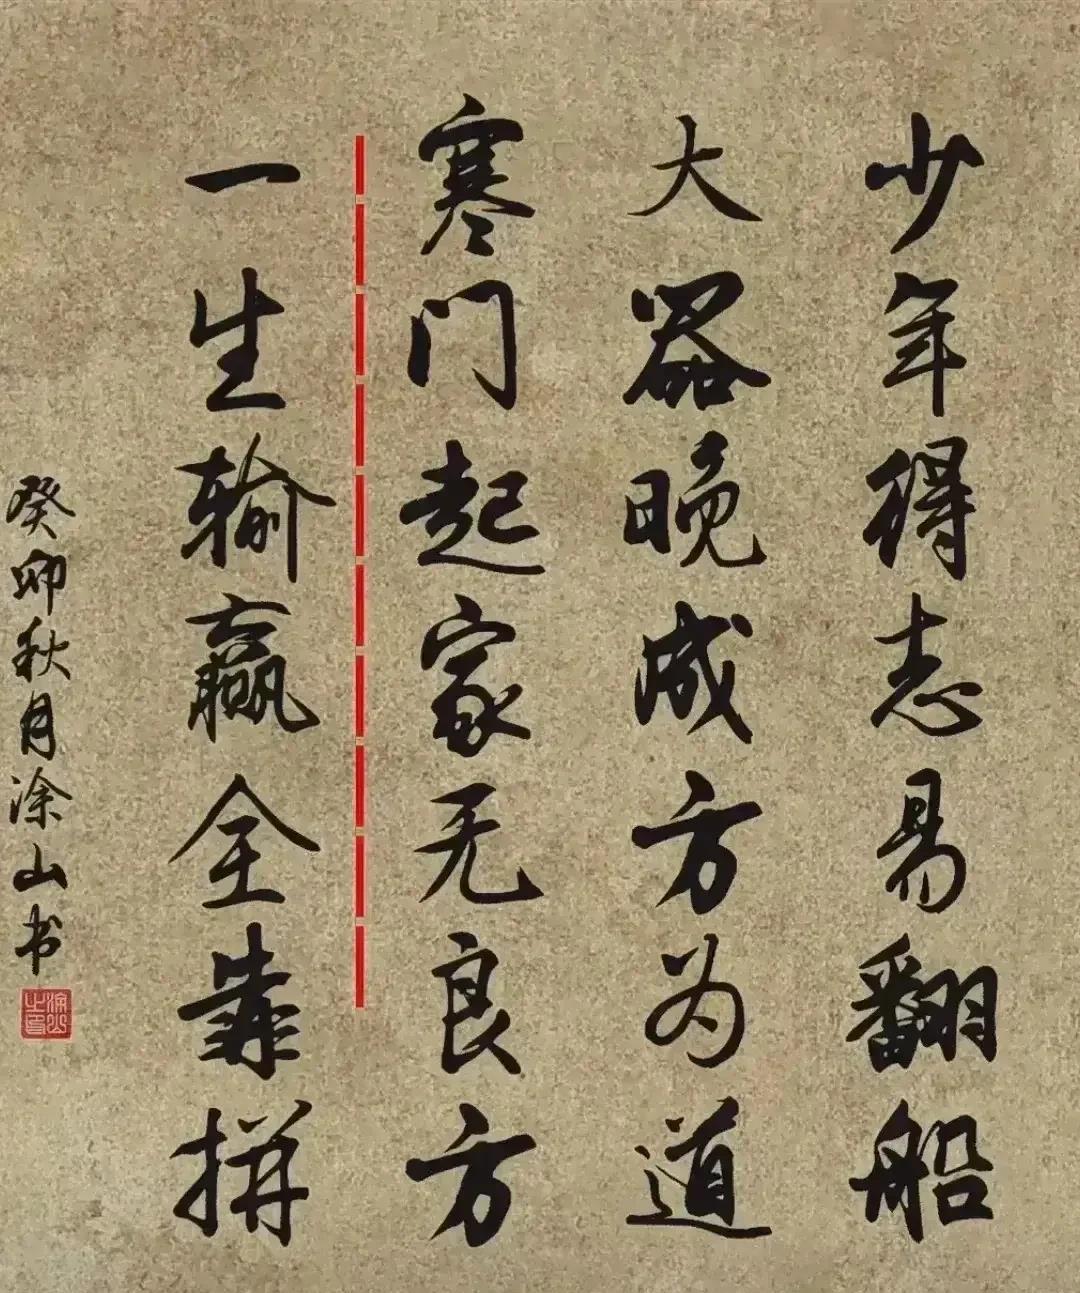 少年得志易翻船
大器晚成方为道
寒门起家无良方
一生输赢全靠拼
癸卯秋月涂山书